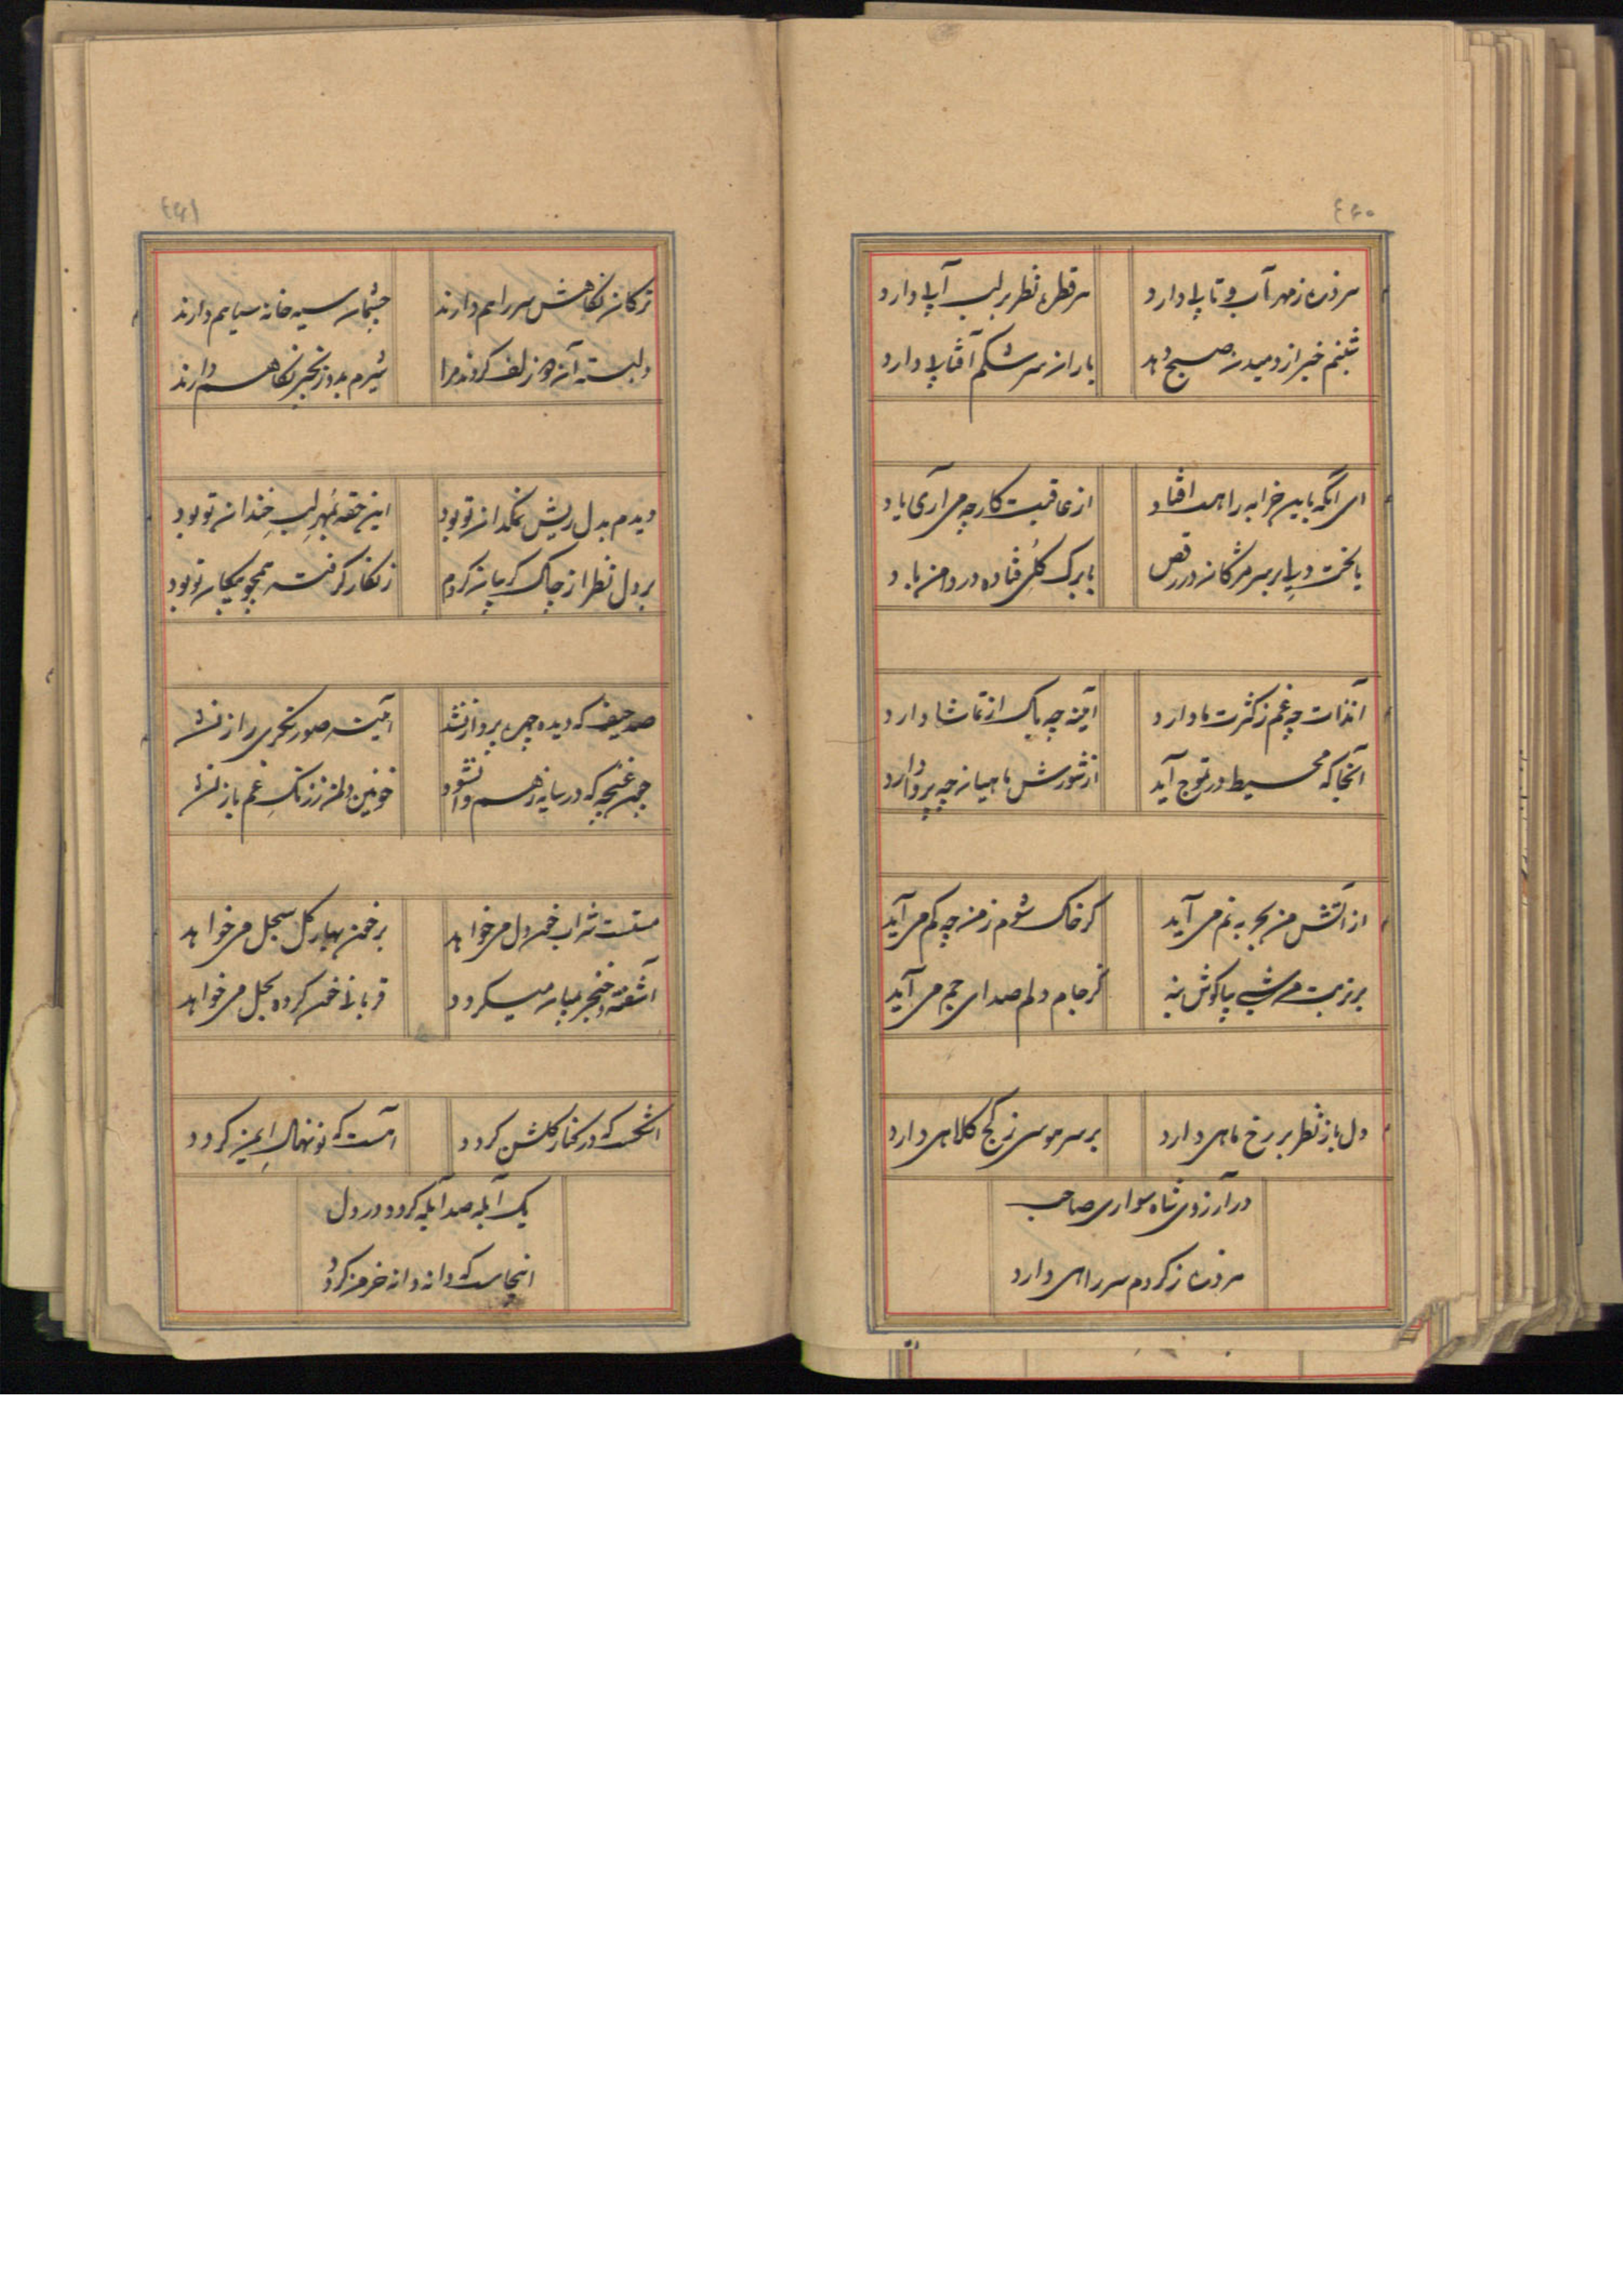 ۴۴۰
هر ذره ز مهر آب و تابی دارد
هر قطره نظر بر لب آبی دارد
شبنم خبر از دمیدن صبح دهد
باران سرشکم آفتابی دارد
ای آنکه باین خرابه راهت افتاد
از عاقبت کار چه می آری یاد
یا لخت دلی بر سر مژگان در رقص
یا برک کلی فتاده در دامن باد
آنذات چه غم ز کثرت ما دارد
آینه چه باک از تماشا دارد
آنجا که محیط در تموج آید
از شورش ماهیان چه پروا دارد
از آتش من بحر به نم می آید
کر خاک شوم ز من چه کم می آید
بر تربت من شبی بیا کوش بنه
کز جام دلم صدای جم می آید
دل باز نظر بر رخ ماهی دارد
بر سر هوسی ز کج کلاهی دارد
در آرزوی شاه سواری صاحب
هر ذره ز کردم سر راهی دارد
۴۴۱
ترکان نکاهش سر راهم دارند
چشمان سیه خانه سیاهم دارند
دلبسته آن دو زلف کردند مرا
شیرم بدو زنجیر نکاهم دارند
دیدم بدل ریش نمکدان تو بود
این حقه بمهر لب خندان تو بود
بر دل نظر از چاک کریبان کردم
زنکار کرفته همچو پیکان تو بود
صد حیف که دیده چهره پرداز نشد
آیینه صورتکری راز نشد
چون غنچه که در سایه ز هم وا نشود
خونین دلم از رنک غم باز نشد
مستست شراب خون دل می خواهد
بر خون بهار کل سجل می خواهد
آشفته و خنجر بمیان میکردد
قربانی خون کرده بحل می خواهد
اشکست که در کنار کلشن کردد
آهست که نو نهال ایمن کردد
یک آبله صد آبله کردد در دل
اینجاست که دانه دانه خرمن کردد